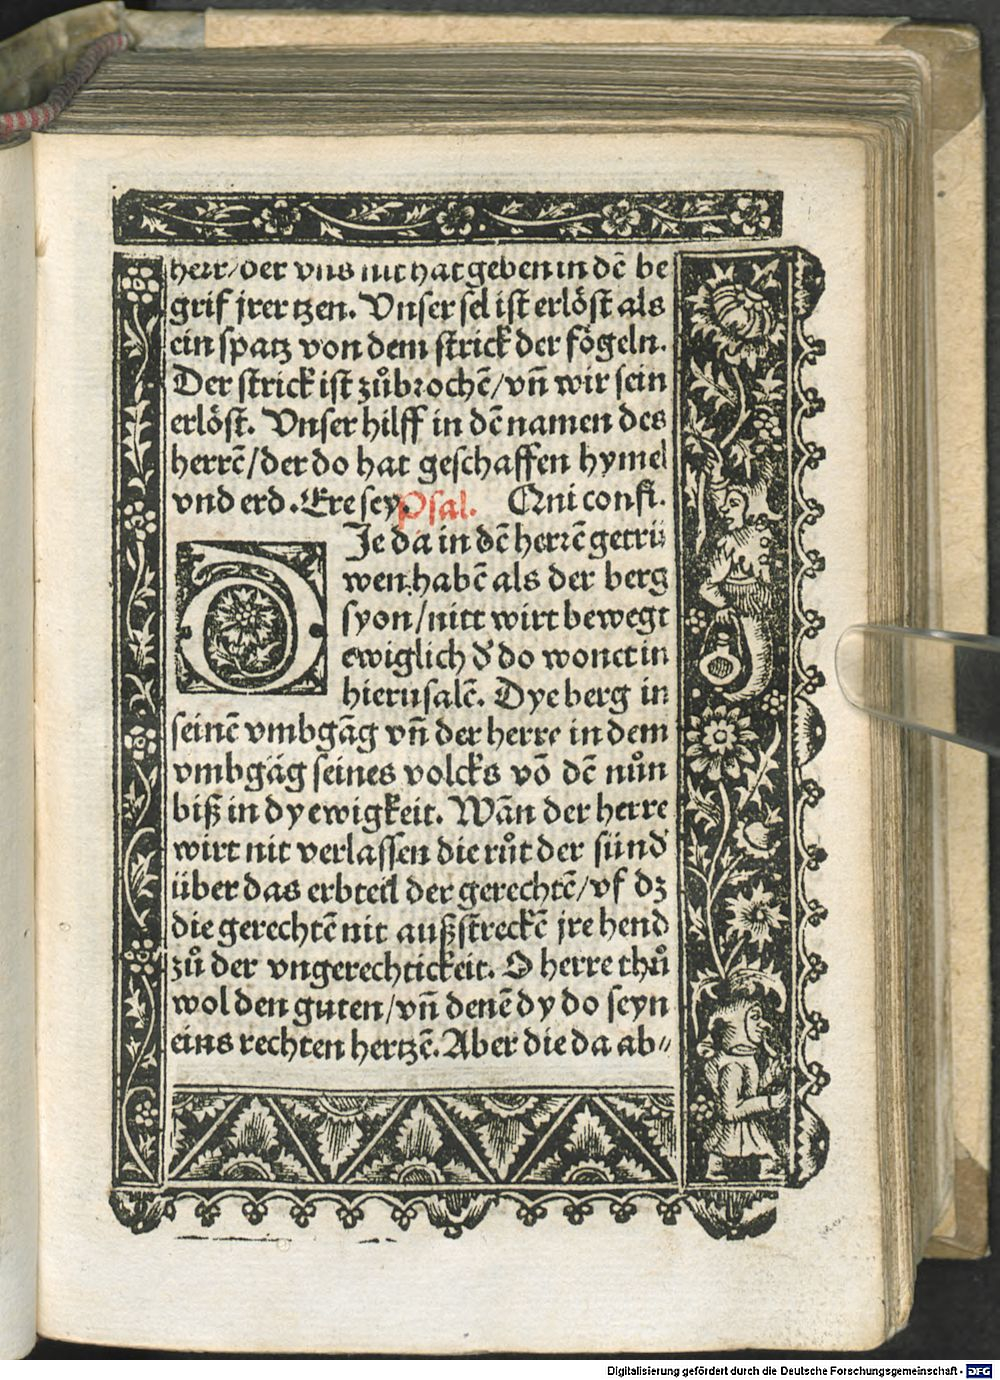 herr/der vns nit hat geben in dē be
grif jrer tzen. Vnser sel ist erlöst als
ein spatz von dem strick der fögeln.
Der strick ist zůbrochē/vn̄ wir sein
erlöst. Vnser hilff in dē namen des
herrē/der do hat geschaffen hymel
vnd erd. Ere sey. Psal. Qui confi.
DIe da in dē herrē getrü
wen habē als der berg
syon/nitt wirt bewegt
ewiglich d' do wonet in
hierusalē. Dye berg in
seinē vmbgāg vn̄ der herre in dem
vmbgāg seines volcks vō dē nůn
biß in dy ewigkeit. Wān der herre
wirt nit verlassen die růt der sünd'
über das erbteil der gerechtē/vf dz
die gerechtē nit außstreckē jre hend
zů der vngerechtickeit. O herre thů
wol den guten/vn̄ denē dy do seyn
eins rechten hertzē. Aber die da ab⸗
Digitalisierung gefördert durch die Deutsche Forschungsgemeinschaft - DFG